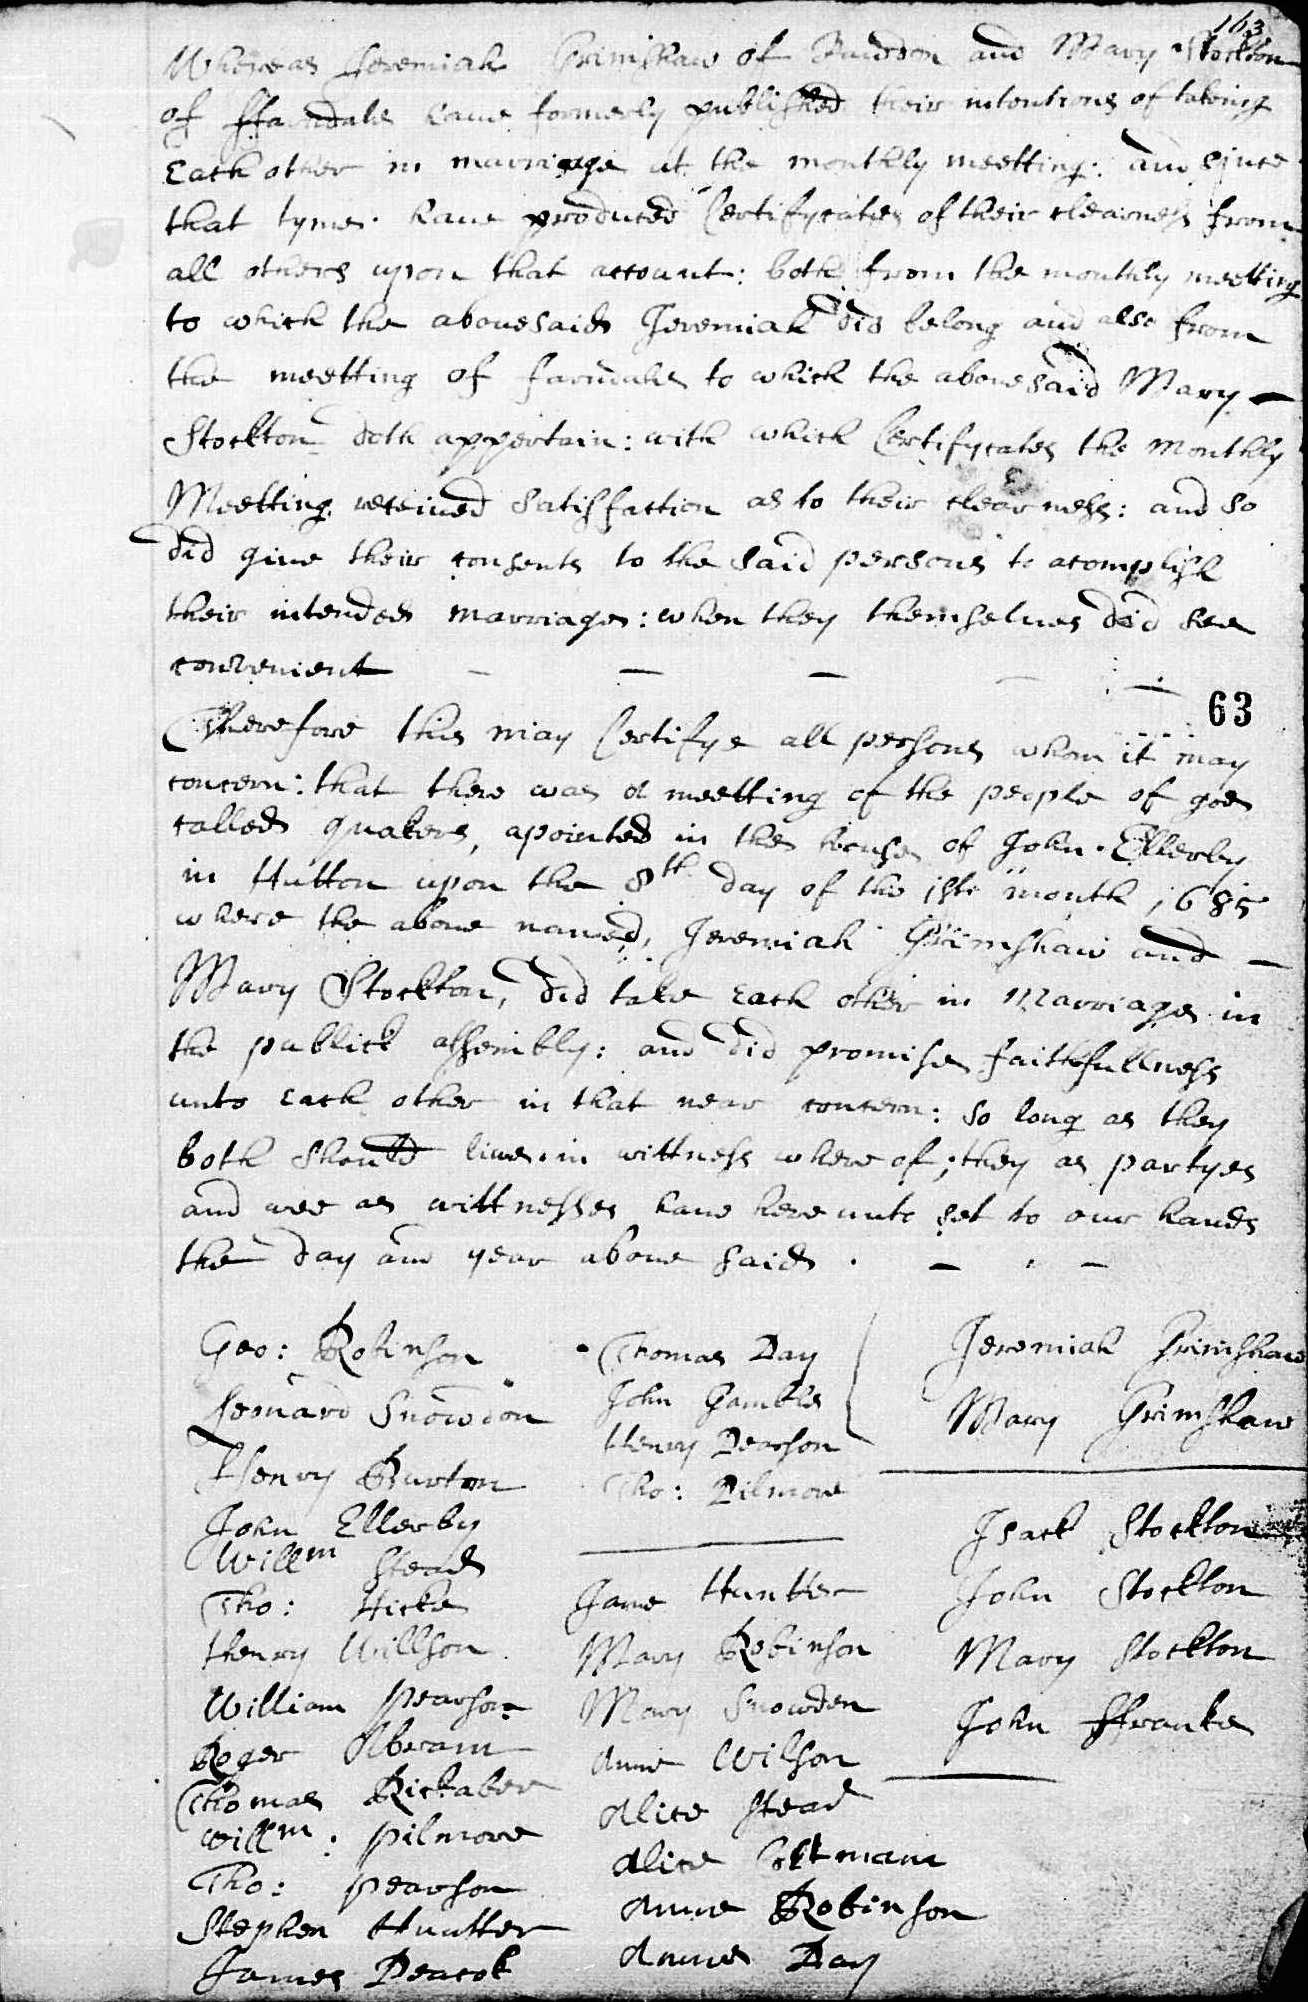 163
Whereas Jeremiah Grimshaw of and Mary Stockton
of ffarndale haue formerly published their intentions of takeing
Each other in marriage at the monthly meetting: and since
that tyme haue produced Certifycates of their clearness from
all others upon that account: both from the monthly meetting
to which the abouesaid Jeremiah did belong and also from
the meetting of farndale to which the abouesaid Mary —
Stockton doth appertain: with which Certifycates the Monthly
Meetting receiued satisfaction as to their clearness: and so
did giue their consents to the said persons to acomplish
their intended marriage: when they themselues did see
convenient — — — — —
63
Therefore this may Certifye all persons whom it may
concern: that there was a meetting of the people of god
called quakers, apointed in the house of John Ellerby
in Hutton upon the 8th day of the 1st month 1685
where the aboue named, Jeremiah Grimshaw and —
Mary Stockton, did take Each other in Marriage in
the publick assembly: and did promise faithfullness
unto each other in that near concern: so long as they
both should liue. in wittness where of; they as partyes
and wee as wittnesses haue here unto set to our hands
the day and year aboue said . — . —
Geo: Robinson
Leonard Snowdon
Henry Burton
John Ellerby
Willm Stead
Tho: Hicke
Henry Willson
William pearson
Roger Abram
Thomas Rickaber
Willm: pilmore
Tho: pearson
Stephen Huntter
James Peacok
Thomas Day
John Gamble
Henry Pearson
Tho: Pilmore
Jane Huntter
Mary Robinson
Mary Snowden
Anne Wilson
Alice Stead
Alice
Anne Robinson
Anne Day
Jeremiah Grimshaw
Mary Grimshaw
Isack Stockton
John Stockton
Mary Stockton
John ffranke